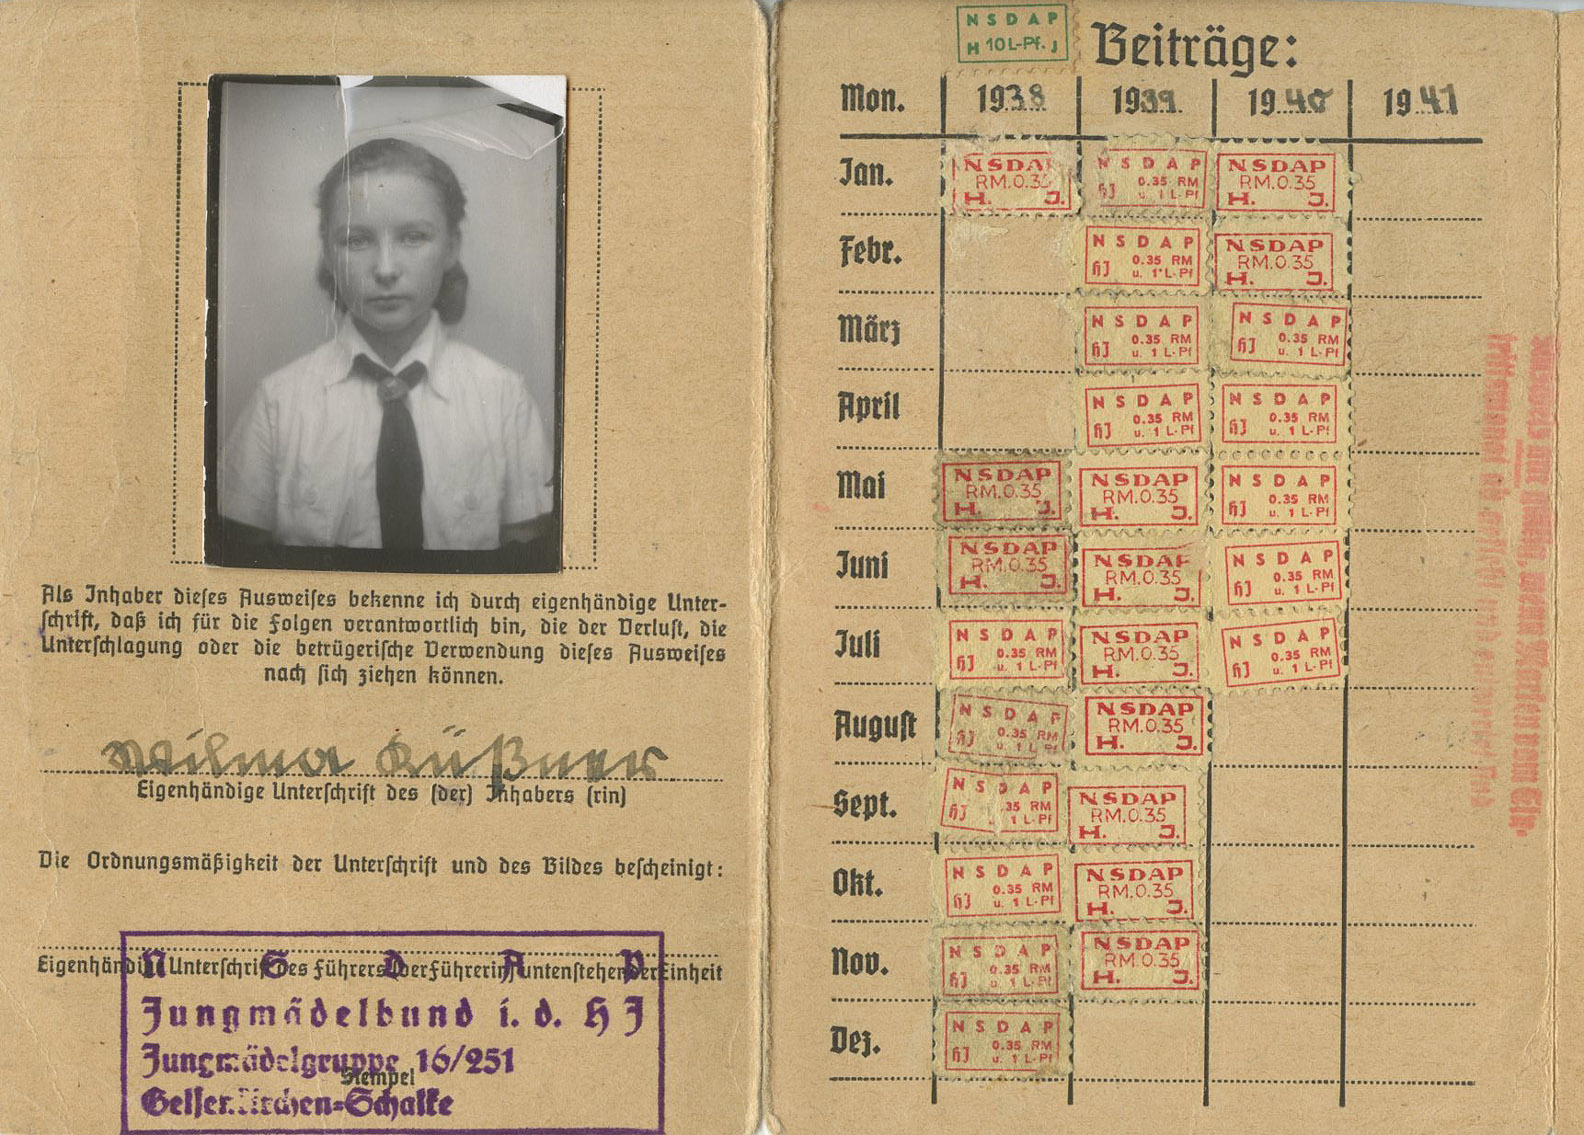 Als Inhaber dieses Ausweises bekenne ich durch eigenhändige Unter-
schrift, daß ich für die Folgen verantwortlich bin, die der Verlust, die
Unterschlagung oder die betrügerische Verwendung dieses Ausweises
nach sich ziehen können.
Wilma Küßner
Eigenhändige Unterschrift des (der) Inhabers (rin)
Die Ordnungsmäßigkeit der Unterschrift und des Bildes bescheinigt:
Eigenhändige Unterschrift des Führers der Führerin untenstehender Einheit
N S D A P
Jungmädelbund i. d. HJ
Jungmädelgruppe 16/251
Stempel
Gelsenkirchen-Schalke
NSDAP
H 10 L-Pf. J
Beiträge:
Mon. 1938 1939 1940 1941
Jan.
NSDAP RM.0.35 H. J.
NSDAP HJ 0.35 RM u. 1 L-Pf
NSDAP RM.0.35 H. J.
Febr.
NSDAP HJ 0.35 RM u. 1 L-Pf
NSDAP RM.0.35 H. J.
März
NSDAP HJ 0.35 RM u. 1 L-Pf
NSDAP HJ 0.35 RM u. 1 L-Pf
April
NSDAP HJ 0.35 RM u. 1 L-Pf
NSDAP HJ 0.35 RM u. 1 L-Pf
Mai
NSDAP RM.0.35 H. J.
NSDAP RM.0.35 H. J.
NSDAP HJ 0.35 RM u. 1 L-Pf
Juni
NSDAP RM.0.35 H. J.
NSDAP RM.0.35 H. J.
NSDAP HJ 0.35 RM u. 1 L-Pf
Juli
NSDAP HJ 0.35 RM u. 1 L-Pf
NSDAP RM.0.35 H. J.
NSDAP HJ 0.35 RM u. 1 L-Pf
August
NSDAP HJ 0.35 RM u. 1 L-Pf
NSDAP RM.0.35 H. J.
Sept.
NSDAP HJ 35 RM 1 L-Pf
NSDAP RM.0.35 H. J.
Okt.
NSDAP HJ 0.35 RM u. 1 L-Pf
NSDAP RM.0.35 H. J.
Nov.
NSDAP HJ 0.35 RM u. 1 L-Pf
NSDAP RM.0.35 H. J.
Dez.
NSDAP HJ 0.35 RM u. 1 L-Pf